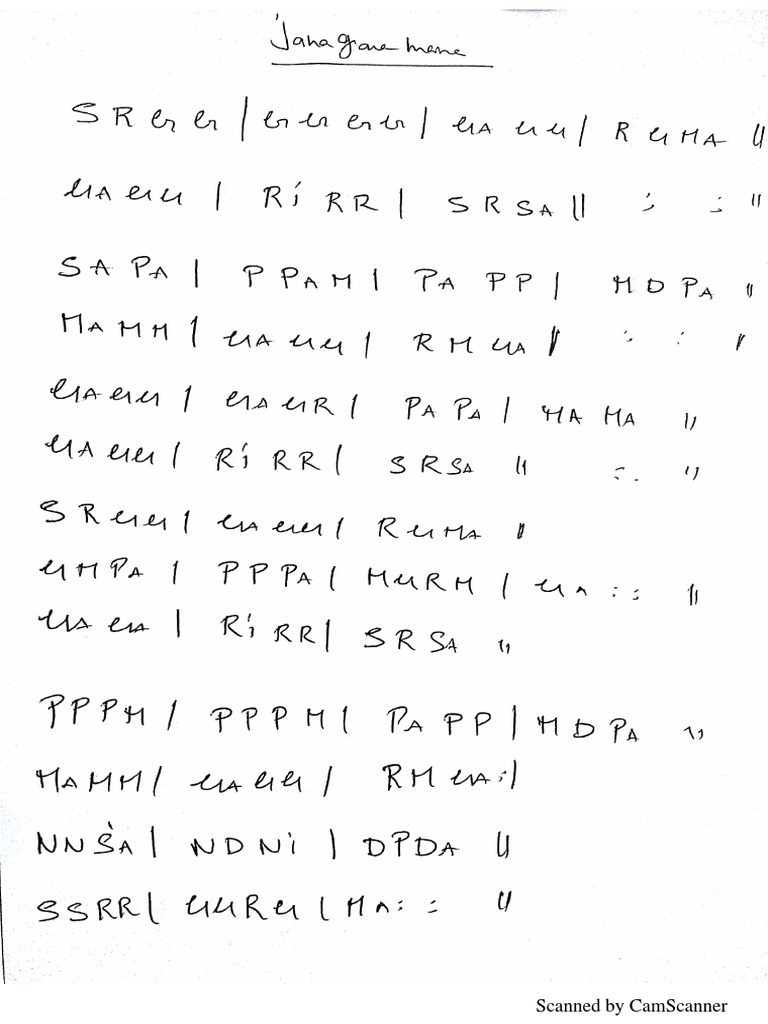 Janagana mana
S R G G | G G G G | GA G G | R G MA ||
GA G G | Ri R R | S R SA || ; ; ||
SA PA | P PA M | PA P P | M D PA ||
MA M M | GA G G | R M GA || ; ; ||
GA G G | GA G R | PA PA | MA MA ||
GA G G | Ri R R | S R SA || ; ; ||
S R G G | GA G G | R G MA ||
G M PA | P P PA | M G R M | GA ; ; ||
GA GA | Ri R R | S R SA ||
P P P M | P P P M | PA P P | M D PA ||
MA M M | GA G G | R M GA ; |
N N ṠA | N D Ni | D P DA ||
S S R R | G G R G | MA ; ; ||
Scanned by CamScanner